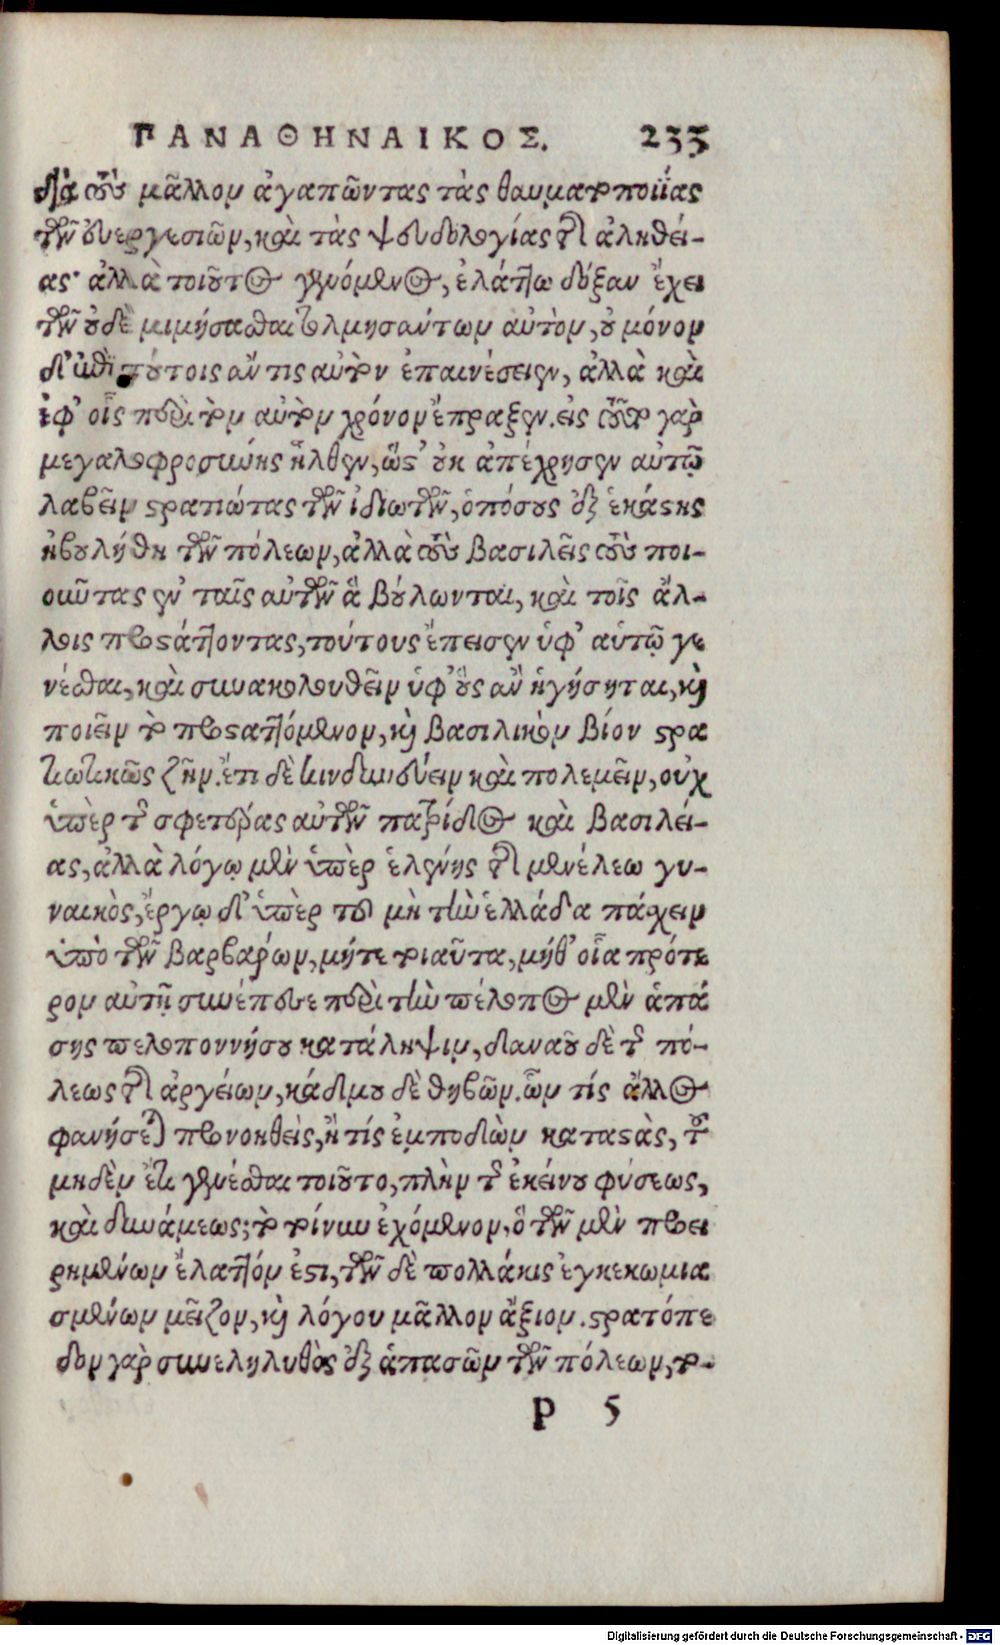 ΠΑΝΑΘΗΝΑΙΚΟΣ. 233
διὰ τοὺς μᾶλλον ἀγαπῶντας τὰς θαυματοποιΐας
τῶν εὐεργεσιῶν, καὶ τὰς ψευδολογίας τῆς ἀληθεί-
ας· ἀλλὰ τοιοῦτος γενόμενος, ἐλάττω δόξαν ἔχει
τῶν οὐδὲ μιμήσασθαι τολμησάντων αὐτὸν, οὐ μόνον
δ' ἐπὶ τούτοις ἄν τις αὐτὸν ἐπαινέσειεν, ἀλλὰ καὶ
ἐφ' οἷς περὶ τὸν αὐτὸν χρόνον ἔπραξεν. εἰς τοῦτο γὰρ
μεγαλοφροσύνης ἦλθεν, ὥστ' οὐκ ἀπέχρησεν αὐτῷ
λαβεῖν στρατιώτας τῶν ἰδιωτῶν, ὁπόσους ἐξ ἑκάστης
ἠβουλήθη τῶν πόλεων, ἀλλὰ τοὺς βασιλεῖς τοὺς ποι-
οῦντας ἐν ταῖς αὑτῶν ἃ βούλωνται, καὶ τοῖς ἄλ-
λοις προστάττοντας, τούτους ἔπεισεν ὑφ' αὑτῷ γε
νέσθαι, καὶ συνακολουθεῖν ὑφ' οὓς ἂν ἡγήσηται, καὶ
ποιεῖν τὸ προσταττόμενον, καὶ βασιλικὸν βίον στρα
τιωτικῶς ζῆν. ἔτι δὲ κινδυνεύειν καὶ πολεμεῖν, οὐχ
ὑπὲρ τῆς σφετέρας αὐτῶν πατρίδος καὶ βασιλεί-
ας, ἀλλὰ λόγῳ μὲν ὑπὲρ ἑλένης τῆς μενέλεω γυ-
ναικὸς, ἔργῳ δ' ὑπὲρ τοῦ μὴ τὴν ἑλλάδα πάσχειν
ὑπὸ τῶν βαρβάρων, μήτε τοιαῦτα, μήθ' οἷα πρότε
ρον αὐτῇ συνέπεσε περὶ τὴν πέλοπος μὲν ἁπά
σης πελοποννήσου κατάληψιν, δαναοῦ δὲ τῆς πό-
λεως τῆς ἀργείων, κάδμου δὲ θηβῶν. ὧν τίς ἄλλος
φανήσεται προνοηθεὶς, ἢ τίς ἐμποδὼν καταστὰς, τοῦ
μηδὲν ἔτι γενέσθαι τοιοῦτο, πλὴν τῆς ἐκείνου φύσεως,
καὶ δυνάμεως; τὸ τοίνυν ἐχόμενον, ὃ τῶν μὲν προει
ρημένων ἔλαττόν ἐστι, τῶν δὲ πολλάκις ἐγκεκωμια
σμένων μεῖζον, καὶ λόγου μᾶλλον ἄξιον. στρατόπε
δον γὰρ συνεληλυθὸς ἐξ ἁπασῶν τῶν πόλεων, το-
P 5
Digitalisierung gefördert durch die Deutsche Forschungsgemeinschaft - DFG